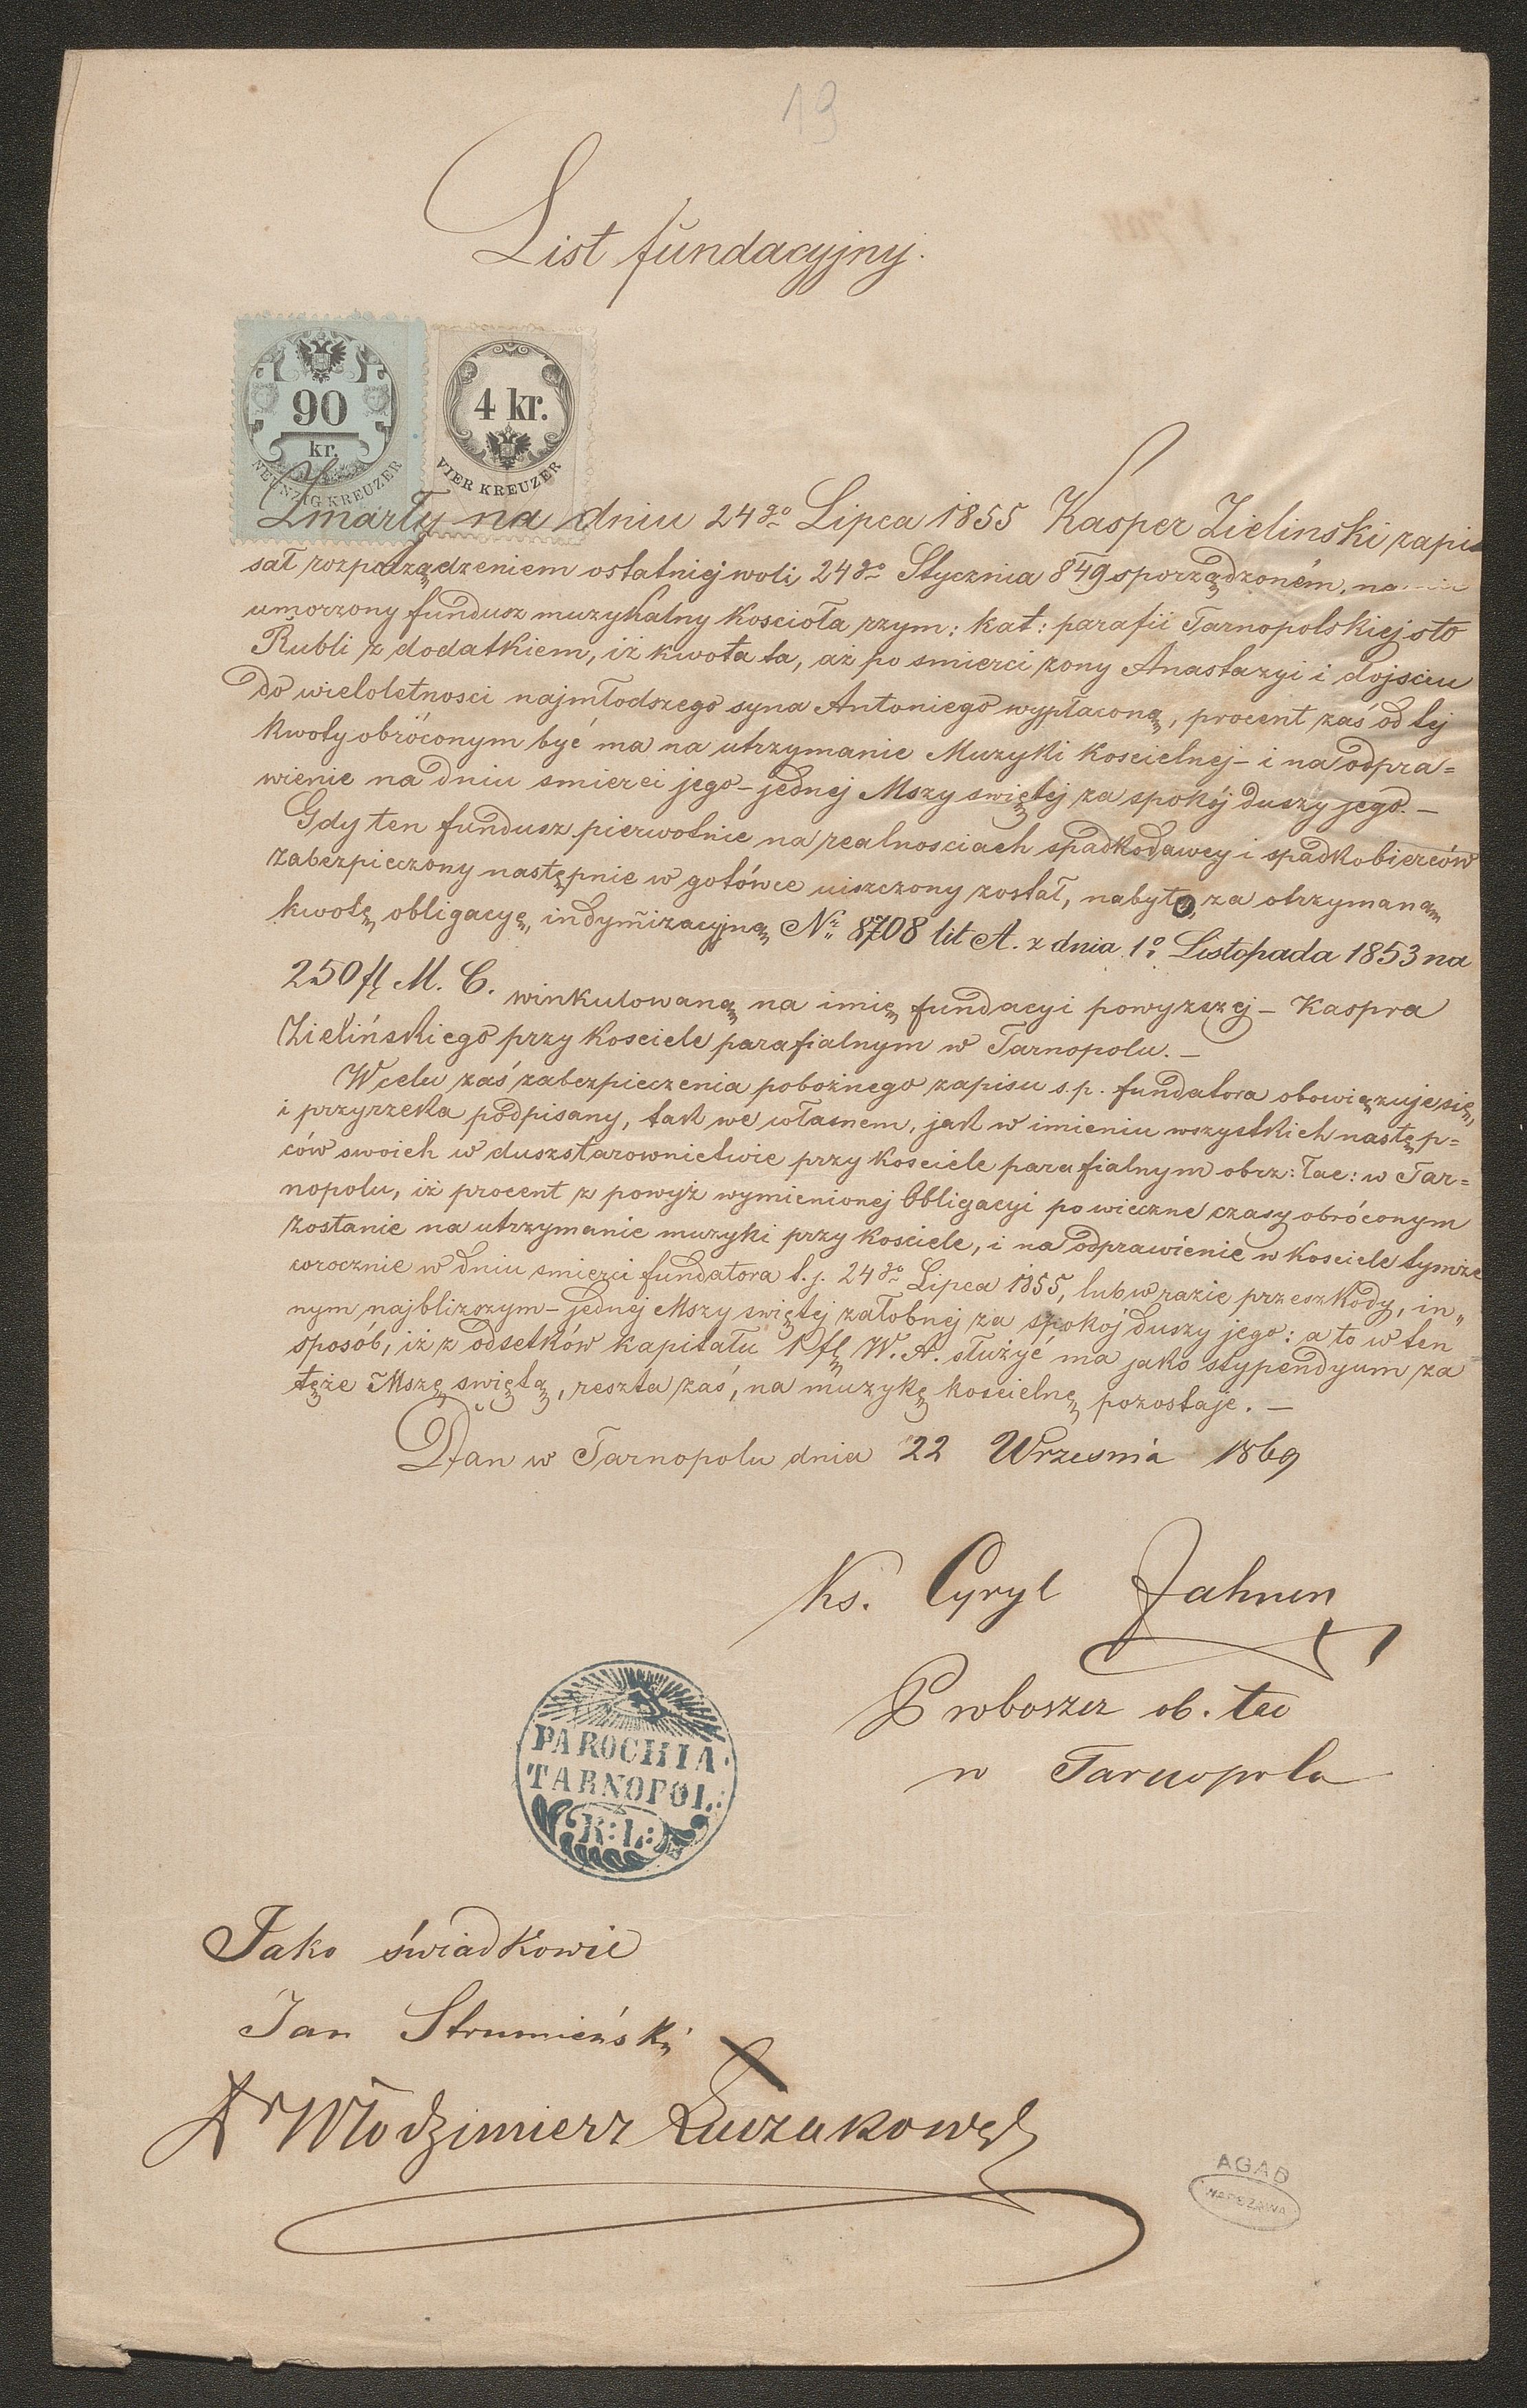 13
List fundacyjny.
90
kr.
NEUNZIG KREUZER
4 kr.
VIER KREUZER
Zmarły na dniu 24go Lipca 1855 Kasper Zielinski zapi
sał rozporządzeniem ostatniej woli 24go Stycznia 849 sporządzoném, na
umorzony fundusz muzykalny Koscioła rzym: kat: parafii Tarnopolskiej sto
Rubli z dodatkiem, iż kwota ta, aż po smierci zony Anastazyi i dojsciu
do wieloletnosci najmłodszego syna Antoniego wypłaconą, procent zaś od tej
kwoty obróconym być ma na utrzymanie Muzyki Koscielnej – i na odpra=
wienie na dniu smierci jego – jednej Mszy swiętej za spokój duszy jego. –
Gdy ten fundusz pierwotnie na realnosciach spadkodawcy i spadkobierców
zabezpieczony następnie w gotówce uiszczony został, nabyto za otrzymaną
kwotę obligacyę indymizacyjną Nr 8708 lit A. z dnia 1o Listopada 1853 na
250 fl M. C. winkulowaną na imię fundacyi powyzszej – Kaspra
Zielińskiego przy Kosciele parafialnym w Tarnopolu. –
W celu zaś zabezpieczenia pobożnego zapisu s.p. fundatora obowiązuje się,
i przyrzeka podpisany, tak we własnem, jak w imieniu wszystkich następ=
ców swoich w duszstarownictwie przy Kosciele parafialnym obrz: łac: w Tar=
nopolu, iż procent z powyż wymienionej Obligacyi po wieczne czasy obróconym
zostanie na utrzymanie muzyki przy Kosciele, i na odprawienie w Kosciele tymże
corocznie w dniu smierci fundatora t.j. 24go Lipca 1855, lub w razie przeszkody, in„
nym najblizszym – jednej Mszy swiętej załobnej za spokój duszy jego: a to w ten
sposób, iż z odsetków kapitału 1 fl W. A. służyć ma jako stypendyum za
tęże Mszę swiętą, reszta zaś, na muzykę koscielną pozostaje. –
Dan w Tarnopolu dnia 22 Wrzesnia 1869
Ks. Cyryl
Proboszcz ob. łac
w Tarnopolu
PAROCHIA
TARNOPOL:
R: L:
Jako świadkowie
Jan Strumieński
Dr Włodzimierz Łuczakowski
AGAD
WARSZAWA